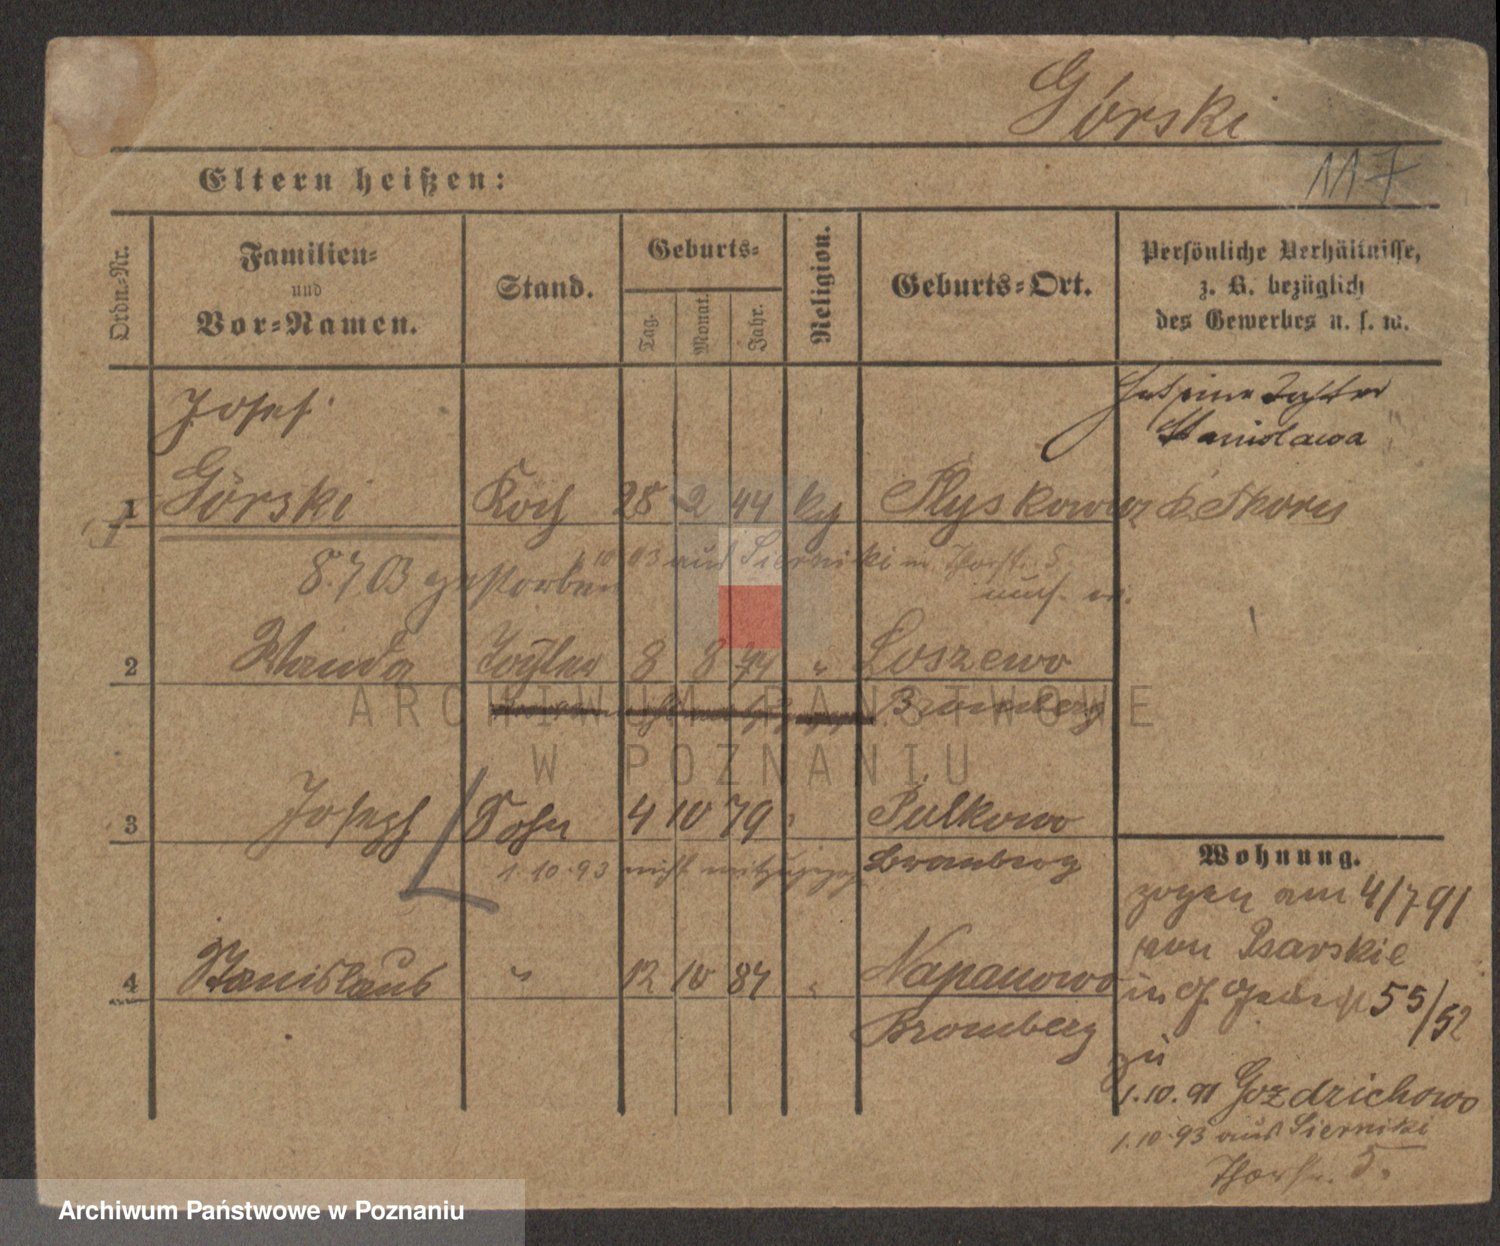 Górski
117
Eltern heißen:
Ordn.-Nr.
Familien-
und
Vor-Namen.
Stand.
Geburts-
Tag.
Monat.
Jahr.
Religion.
Geburts-Ort.
Persönliche Verhältnisse,
z. B. bezüglich
des Gewerbes u. s. w.
Josef
Stanislawa
1 Górski Koch 28 2 44
8.7 03 gestorben
aus Sierniki
2 Wanda 8 8 74 " Loszewo
Bromberg
3 Joseph Sohn 4 10 79 Pulkowo
1.10.93 nicht Bromberg
4 Stanislaus " 12 10 84 " Napanowo
Bromberg
Wohnung.
zogen am 4/7 91
von Psarskie
in 55/52
zu
1.10.91 Gozdrichowo
1.10.93 aus Sierniki
5.
ARCHIWUM PAŃSTWOWE
W POZNANIU
Archiwum Państwowe w Poznaniu